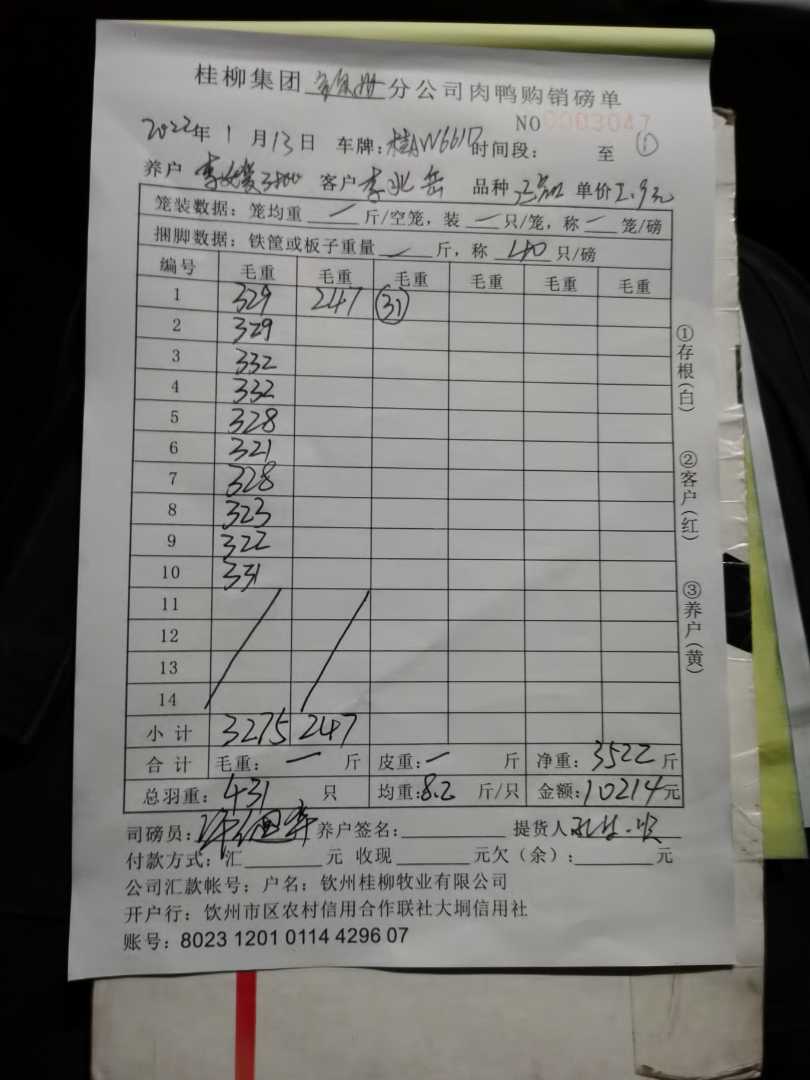 桂柳集团 分公司肉鸭购销磅单
NO 0003047
2022年 1 月 13 日 车牌：桂AW661D 时间段： 至 ①
养户 李 客户 李 岳 品种 单价 2.9元
笼装数据：笼均重 一 斤/空笼，装 一 只/笼，称 一 笼/磅
捆脚数据：铁筐或板子重量 一 斤，称 40 只/磅
编号 毛重 毛重 毛重 毛重 毛重 毛重
1 329 247 31
2 329
3 332
4 332
5 328
6 321
7 328
8 323
9 322
10 331
11
12
13
14
小计 3275 247
合计 毛重：一 斤 皮重：一 斤 净重：3522 斤
总羽重：431 只 均重：8.2 斤/只 金额：10214元
司磅员： 养户签名： 提货人
付款方式：汇 元 收现 元欠（余）： 元
公司汇款帐号：户名：钦州桂柳牧业有限公司
开户行：钦州市区农村信用合作联社大垌信用社
账号：8023 1201 0114 4296 07
①存根(白)
②客户(红)
③养户(黄)